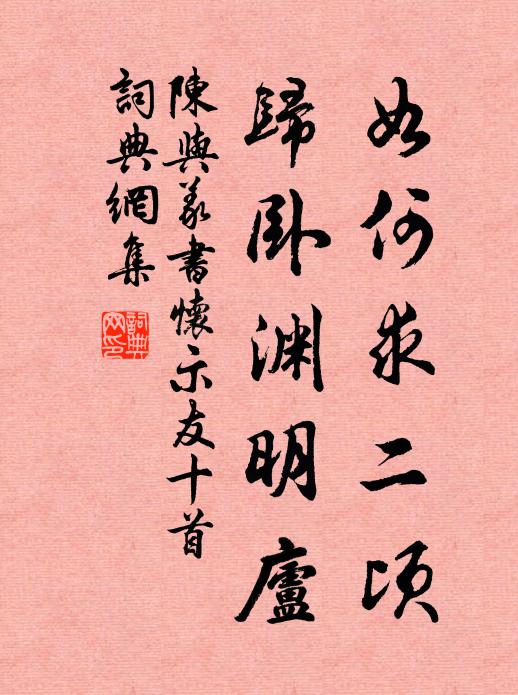 如何求二頃
歸卧渊明廬
陳與義書懷示友十首
詞典網集
詞典網印